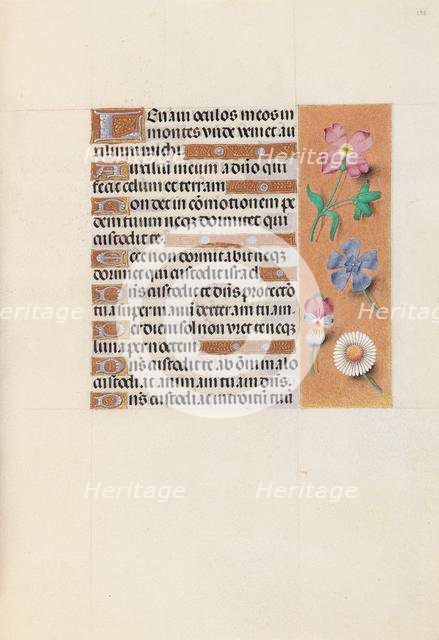 Levavi oculos meos in
montes unde veniet au
xilium michi.
Auxilium meum a dño qui
fecit celum et terram
Non det in cõmotionem pe
dem tuum neqz dormitet qui
custodit te.
Ecce non dormitabit neqz
dormiet qui custodit isrl
Dñs custodit te dñs protectio
tua super manũ dexteram tuam.
Per diem sol non uret te neqz
luna per noctem
Dñs custodit te ab õni malo
custodiat animam tuam dñs.
Dñs custodiat introitũ tuũ
Heritage
Heritage
Heritage
Heritage
Heritage
Heritage